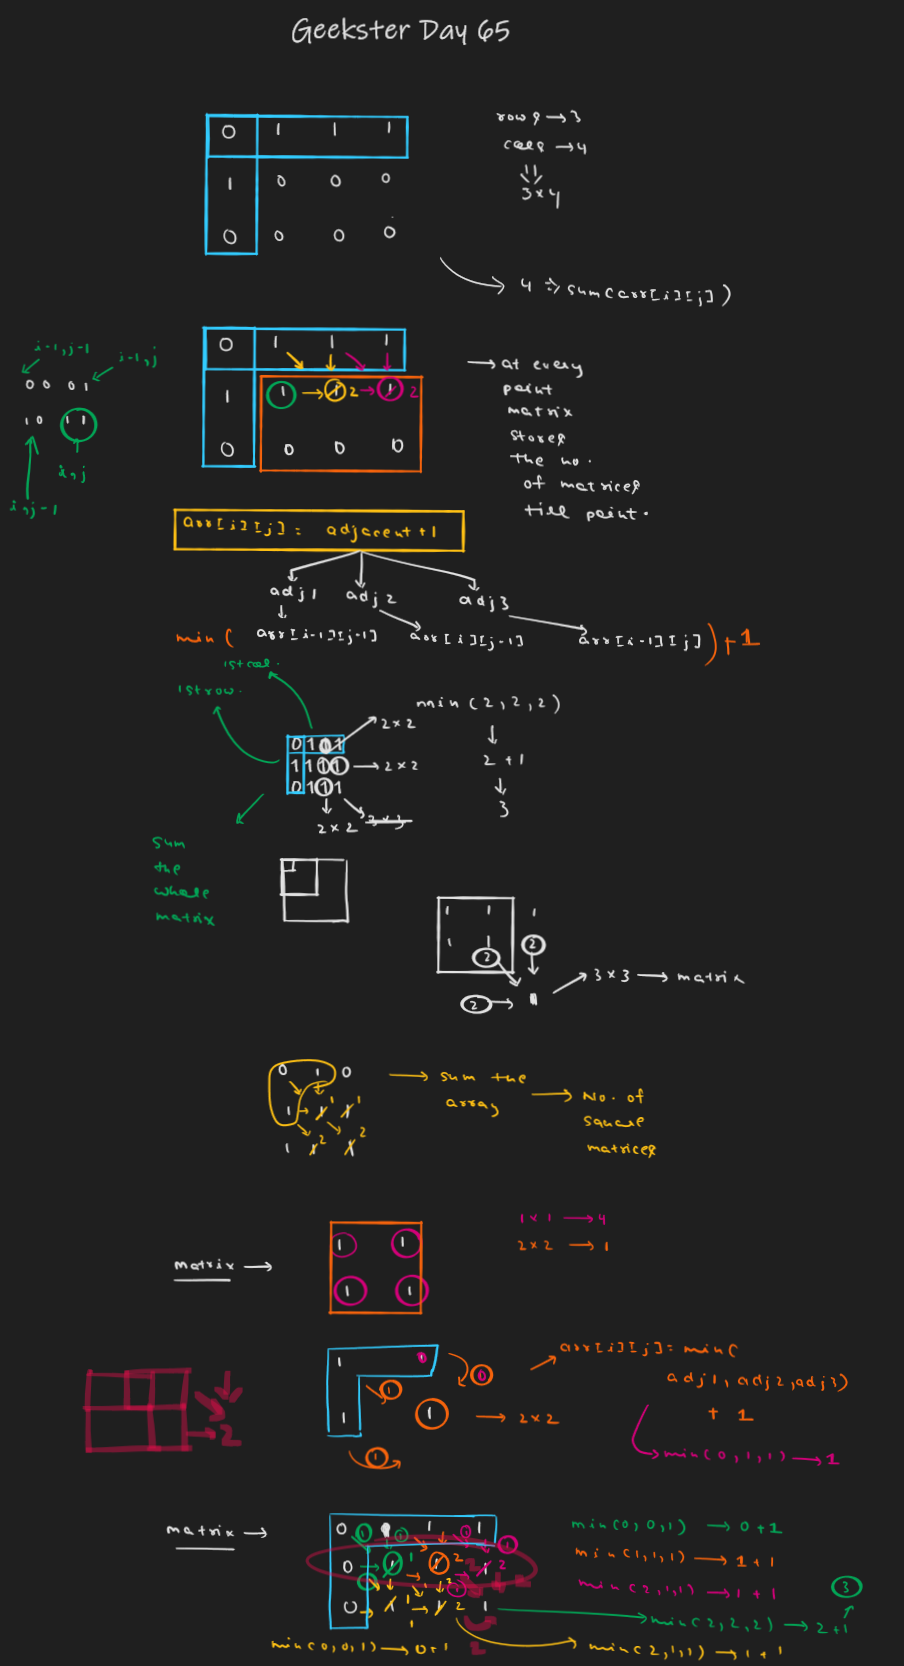 Geekster Day 65
0 1 1 1
1 0 0 0
0 0 0 0
rows → 3
cols → 4
3×4
4 ⇒ sum(arr[i][j])
i-1,j-1
i-1,j
0 0 0 1
1 0 1 1
i,j
i,j-1
0 1 1 1
1 1 1 2 1 2
0 0 0 0
→ at every
point
matrix
stores
the no.
of matrices
till point.
arr[i][j] = adjacent +1
adj1 adj2 adj3
min( arr[i-1][j-1] arr[i][j-1] arr[i-1][j] ) +1
1st col.
1st row.
0 1 0 1
1 1 1 1
0 1 1 1
2×2
→ 2×2
2×2 3×3
min(2,2,2)
2 +1
3
sum
the
whole
matrix
1 1 1
1 1 2
2
2 → 1
3×3 → matrix
0 1 0
1 → 1 1 1 1
1 1 2 1 2
→ sum the
array
→ No. of
square
matrices
matrix →
1 1
1 1
1×1 → 4
2×2 → 1
1 0
1 0
1 1 → 2×2
1
arr[i][j] = min(
adj1, adj2, adj3)
+ 1
→ min(0,1,1) → 1
→ 2
matrix →
min(0,0,1) → 0+1
min(1,1,1) → 1+1
min(2,1,1) → 1+1
3
min(2,2,2) → 2+1
min(0,0,1) → 0+1
min(2,1,1) → 1+1